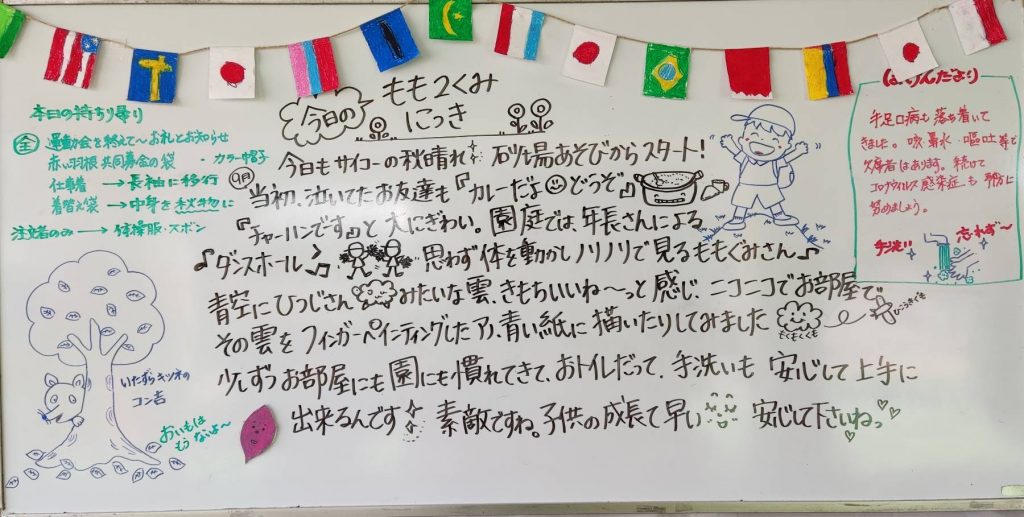 今日の
ももつくみ
にっき
今日もサイコーの秋晴れ 砂場あそびからスタート!
9月
当初、泣いてたお友達も『カレーだよ どうぞ』
『チャーハンです』と大にぎわい。園庭では、年長さんによる
♪ダンスホール♪ 思わず体を動かしノリノリで見るももぐみさん♪
青空にひつじさん みたいな雲、きもちいいね〜っと感じ、ニコニコでお部屋で
その雲をフィンガーペインティングしたり、青い紙に描いたりしてみました
もくもくぐも
ひこうきぐも
少しずつお部屋にも園にも慣れてきて、おトイレだって、手洗いも安心して上手に
出来るんです 素敵ですね。子供の成長て早い 安心して下さいねっ
本日の持ち帰り
金 運動会を終えて〜お礼とお知らせ
赤い羽根共同募金の袋 ・カラー帽子
仕事着 → 長袖に移行
着替え袋 → 中等を秋物に
注文者のみ → 体操服・ズボン
いたずらキツネの
コン吉
おいもは
もうないよ〜
ほけんだより
手足口病も落ち着いて
きました。咳・鼻水・嘔吐等で
欠席者はあります。続けて
コロナウイルス感染症も予防に
努めましょう。
手洗い 忘れず〜